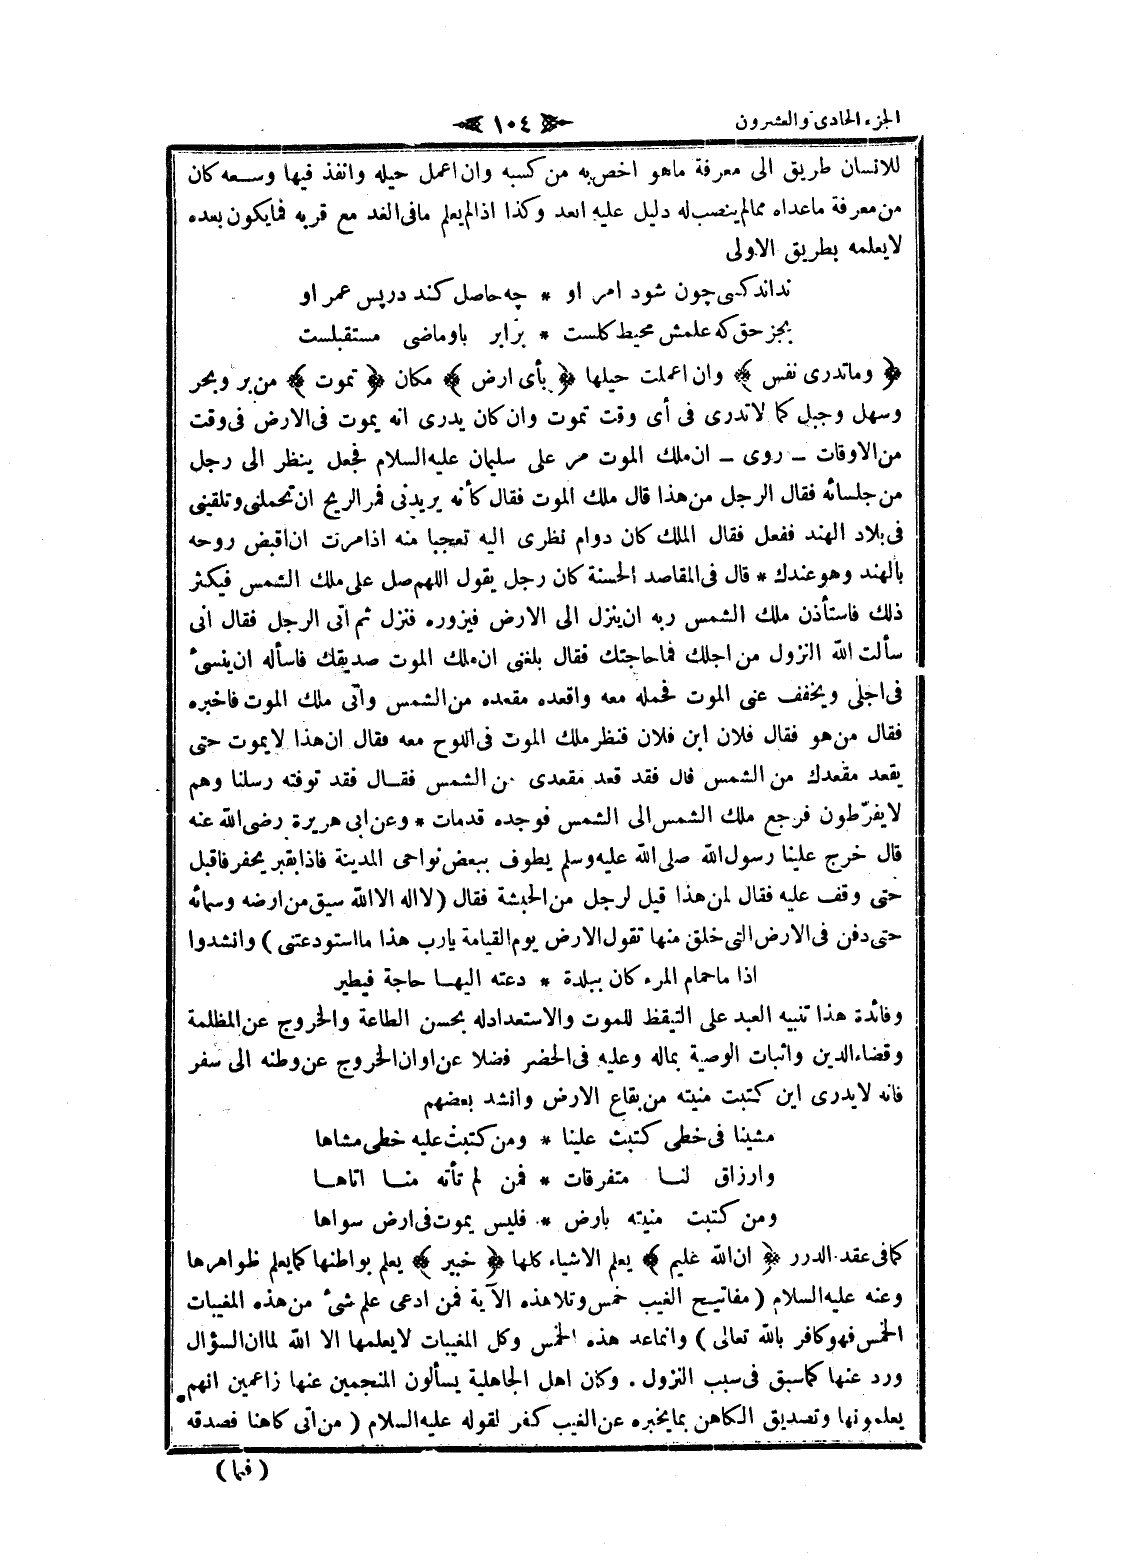 الجزء الحادى والعشرون
١٠٤
للانسان طريق الى معرفة ماهو اخص به من كسبه وان اعمل حيله وانفذ فيها وسعه كان
من معرفة ماعداه ممالم ينصب له دليل عليه ابعد وكذا اذالم يعلم مافى الغد مع قربه فمايكون بعده
لايعلمه بطريق الاولى
نداند كسى چون شود امر او * چه حاصل كند درپس عمر او
بجز حق كه علمش محيط كلست * برابر باوماضى مستقبلست
﴿ وماتدرى نفس ﴾ وان اعملت حيلها ﴿ بأى ارض ﴾ مكان ﴿ تموت ﴾ من بر وبحر
وسهل وجبل كما لاتدرى فى أى وقت تموت وان كان يدرى انه يموت فى الارض فى وقت
من الاوقات ـ روى ـ ان ملك الموت مر على سليمان عليه السلام فجعل ينظر الى رجل
من جلسائه فقال الرجل من هذا قال ملك الموت فقال كأنه يريدنى فمر الريح ان تحملنى وتلقينى
فى بلاد الهند ففعل فقال الملك كان دوام نظرى اليه تعجبا منه اذامرت ان اقبض روحه
بالهند وهو عندك * قال فى المقاصد الحسنة كان رجل يقول اللهم صل على ملك الشمس فيكثر
ذلك فاستأذن ملك الشمس ربه ان ينزل الى الارض فيزوره فنزل ثم اتى الرجل فقال انى
سألت الله النزول من اجلك فماحاجتك فقال بلغنى ان ملك الموت صديقك فاسأله ان ينسىء
فى اجلى ويخفف عنى الموت فحمله معه واقعده مقعده من الشمس واتى ملك الموت فاخبره
فقال من هو فقال فلان ابن فلان فنظر ملك الموت فى اللوح معه فقال ان هذا لايموت حتى
يقعد مقعدك من الشمس قال فقد قعد مقعدى من الشمس فقـال فقد توفته رسلنا وهم
لايفرّطون فرجع ملك الشمس الى الشمس فوجده قدمات * وعن ابى هريرة رضى الله عنه
قال خرج علينا رسول الله صلى الله عليه وسلم يطوف ببعض نواحى المدينة فاذا بقبر يحفر فاقبل
حتى وقف عليه فقال لمن هذا قيل لرجل من الحبشة فقال ( لااله الاالله سيق من ارضه وسمائه
حتى دفن فى الارض التى خلق منها تقول الارض يوم القيامة يارب هذا مااستودعتنى ) وانشدوا
اذا ماحمام المرء كان ببلدة * دعته اليهـا حاجة فيطير
وفائدة هذا تنبيه العبد على التيقظ للموت والاستعداد له بحسن الطاعة والخروج عن المظلمة
وقضاء الدين واثبات الوصية بماله وعليه فى الحضر فضلا عن اوان الخروج عن وطنه الى سفر
فانه لايدرى اين كتبت منيته من بقاع الارض وانشد بعضهم
مشينا فى خطى كتبت علينا * ومن كتبت عليه خطى مشاها
وارزاق لنـا متفرقات * فمن لم تأته منـا اتاهـا
ومن كتبت منيته بارض * فليس يموت فى ارض سواها
كمافى عقد الدرر ﴿ ان الله عليم ﴾ يعلم الاشياء كلها ﴿ خبير ﴾ يعلم بواطنها كمايعلم ظواهرها
وعنه عليه السلام ( مفاتيح الغيب خمس وتلاهذه الآية فمن ادعى علم شىء من هذه المغيبات
الخمس فهوكافر بالله تعالى ) وانماعد هذه الخمس وكل المغيبات لايعلمها الا الله لماان السؤال
ورد عنها كماسبق فى سبب النزول . وكان اهل الجاهلية يسألون المنجمين عنها زاعمين انهم
يعلمونها وتصديق الكاهن بمايخبره عن الغيب كفر لقوله عليه السلام ( من اتى كاهنا فصدقه
( فيما )